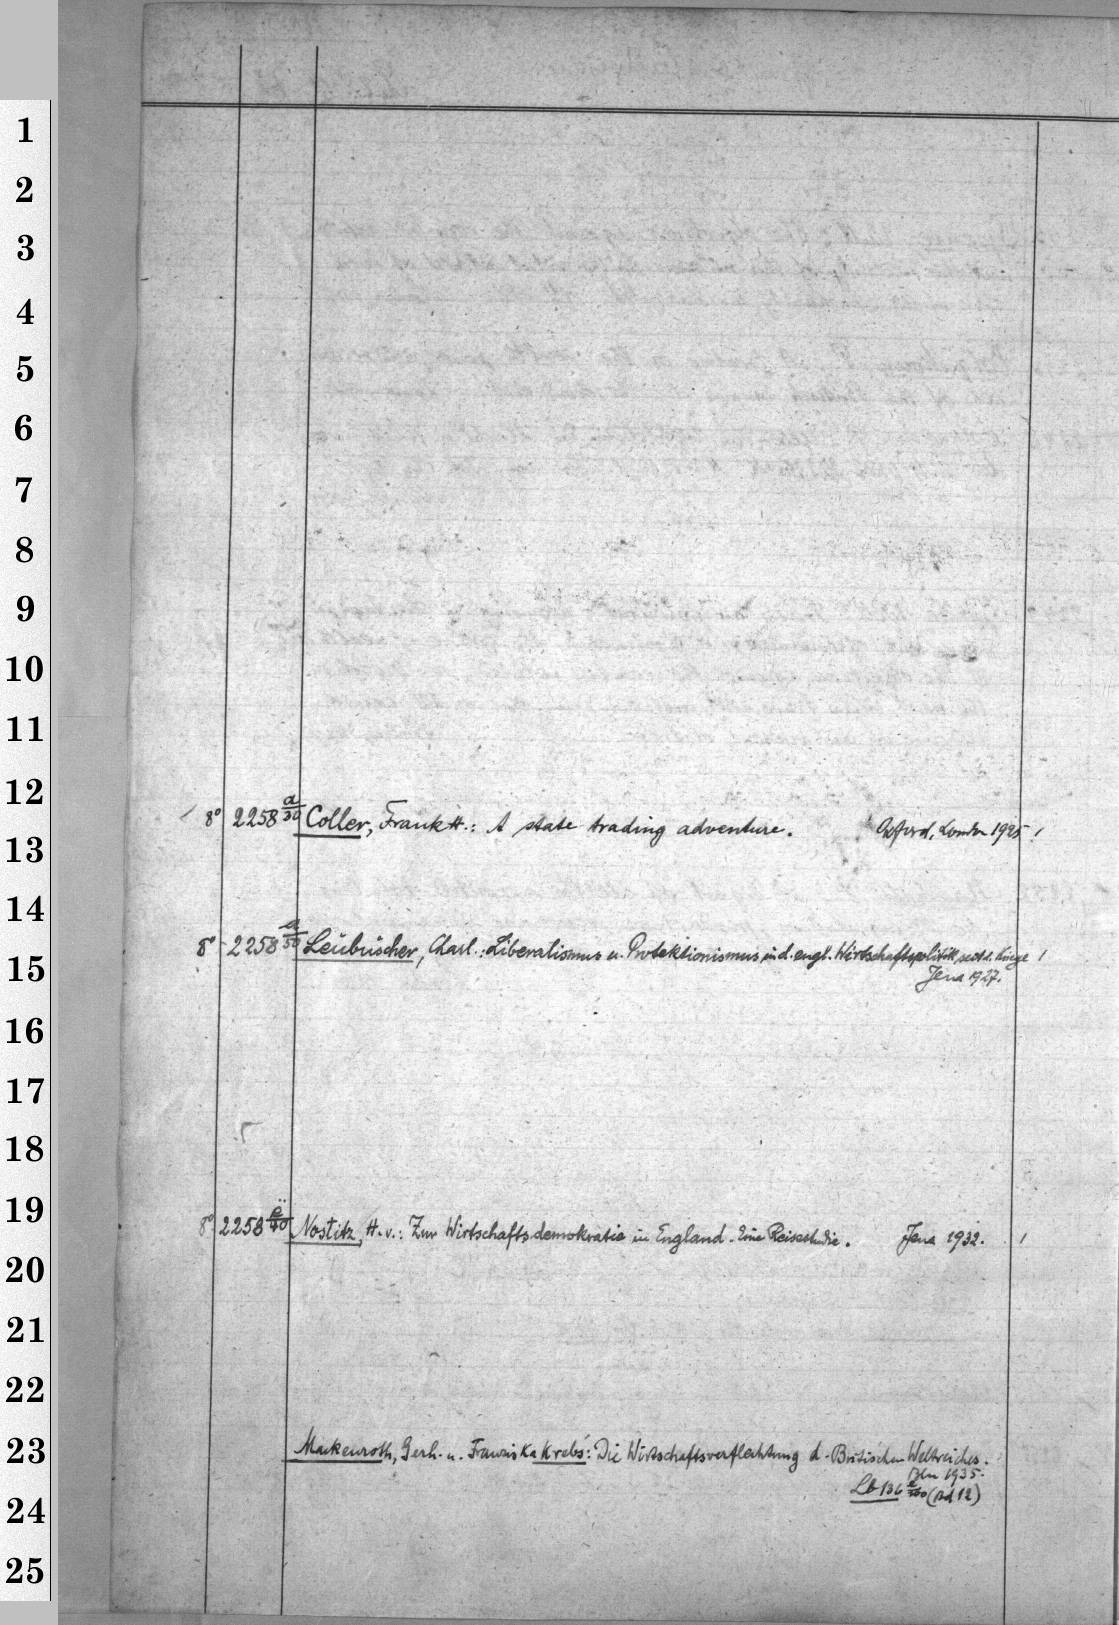 1
2
3
4
5
6
7
8
9
10
11
12
8° 2258 a/30 Coller, Frank H.: A state trading adventure. Oxford, London 1925
13
14
8° 2258 a/50 Leubuscher, Charl.: Liberalismus u. Protektionismus in d. engl. Wirtschaftspolitik seit d. Kriege
15
Jena 1927.
16
17
18
19
8° 2258 ë/40 Nostitz, H. v.: Zur Wirtschaftsdemokratie in England. Eine Reisestudie. Jena 1932.
20
21
22
23
Mackenroth, Gerh. u. Franziska Krebs: Die Wirtschaftsverflechtung d. Britischen Weltreiches.
Bln 1935.
24
Lb 136 (Bd 12)
25